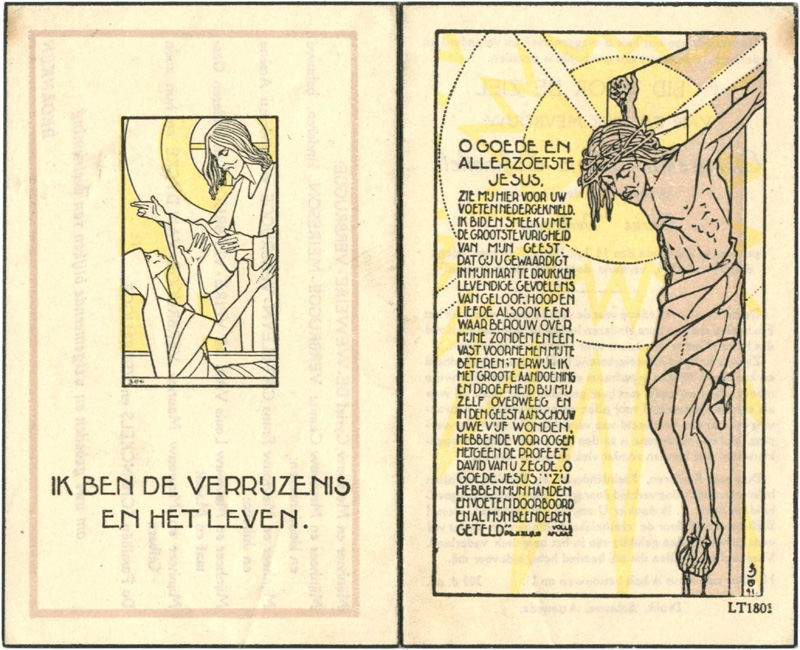 IK BEN DE VERRIJZENIS
EN HET LEVEN.
O GOEDE EN
ALLERZOETSTE
JESUS,
ZIE MIJ HIER VOOR UW
VOETEN NEDERGEKNIELD.
IK BID EN SMEEK U MET
DE GROOTSTE VURIGHEID
VAN MIJN GEEST,
DAT GIJ U GEWAARDIGT
IN MIJN HART TE DRUKKEN
LEVENDIGE GEVOELENS
VAN GELOOF, HOOP EN
LIEFDE ALSOOK EEN
WAAR BEROUW OVER
MIJNE ZONDEN EN EEN
VAST VOORNEMEN MIJ TE
BETEREN; TERWIJL IK
MET GROOTE AANDOENING
EN DROEFHEID BIJ MIJ
ZELF OVERWEEG EN
IN DEN GEEST AANSCHOUW
UWE VIJF WONDEN,
HEBBENDE VOOR OOGEN
HETGEEN DE PROFEET
DAVID VAN U ZEGDE, O
GOEDE JESUS: "ZIJ
HEBBEN MIJN HANDEN
EN VOETEN DOORBOORD
EN AL MIJN BEENDEREN
GETELD"
VOLLE
AFLAAT
LT1801